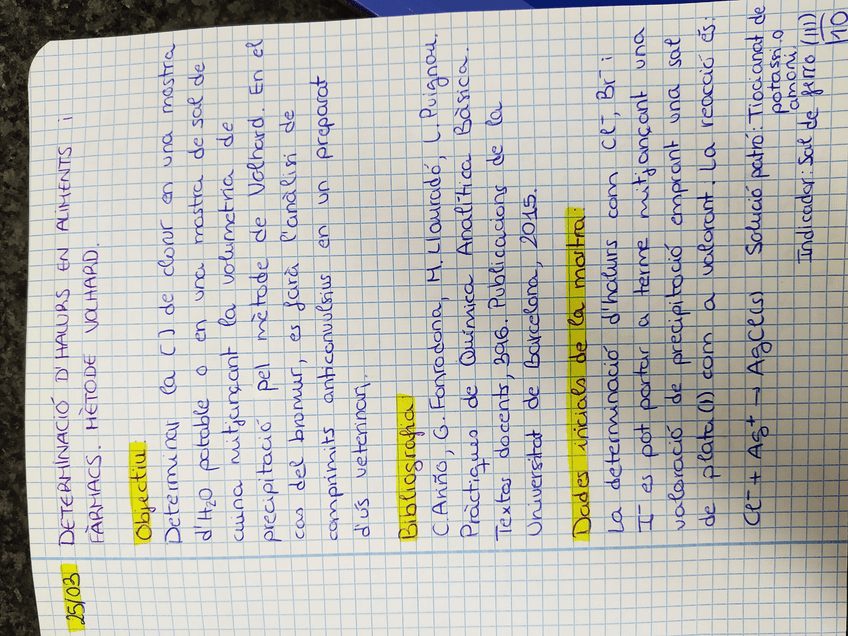 25/03
DETERMINACIÓ D'HALURS EN ALIMENTS i
FÀRMACS. MÈTODE VOLHARD.
Objectiu:
Determinar la [] de clorur en una mostra
d'H2O potable o en una mostra de sal de
cuina mitjançant la volumetria de
precipitació pel mètode de Volhard. En el
cas del bromur, es farà l'anàlisi de
comprimits anticonvulsius en un preparat
d'ús veterinari.
Bibliografia:
C. Ariño, G. Fonrodona, M. Llauradó, L. Puignou.
Pràctiques de Química Analítica Bàsica.
Textos docents, 396. Publicacions de la
Universitat de Barcelona, 2015.
Dades inicials de la mostra:
La determinació d'halurs com Cl-, Br- i
I- es pot portar a terme mitjançant una
valoració de precipitació emprant una sal
de plata(I) com a valorant. La reacció és:
Cl- + Ag+ → AgCl(s) Solució patró: Tiocianat de
potassi o
amoni.
Indicador: Sal de ferro (III)
10